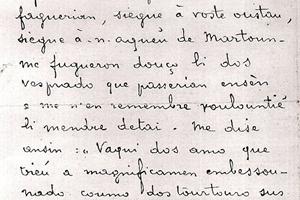 faguerian, siegue à voste oustau,
siegue à-n-aquéu de Martoun-
me fugueron douço li dos
vesprado que passerian ensèn
e me n'en remembre voulountié
li mendre detai. Me dise
ansin : « Vaqui dos amo que
Diéu a magnificamen embessou-
nado coumo dos tourtouro sus